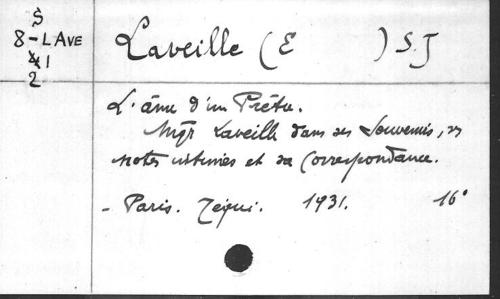 S
8-LAVE
41
2
Laveille (E ) S.J
L'âme d'un Prêtre.
Mgr Laveille dans ses Souvenirs, ses
notes intimes et sa Correspondance.
- Paris. Téqui. 1931. 16°